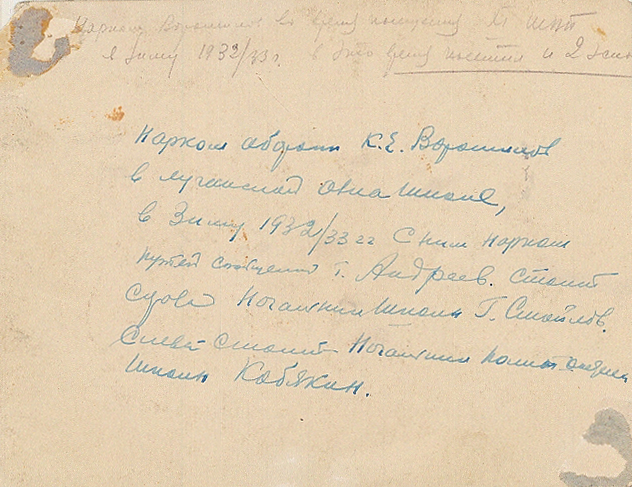 Нарком Ворошилов во время посещения
в зиму 1932/33 г. в это время посетил и 2
Нарком обороны К.Е. Ворошилов
в луганской авиа школе,
в Зиму 1932/33 гг С ним нарком
путей сообщения т. Андреев. Стоит
Начальник школы Г. Стойлов.
Слева стоит Начальник полит отдела
школы Кобякин.